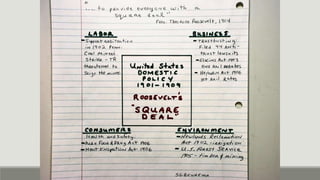 .... to provide everyone with a
square deal"
Pres. Theodore Roosevelt, 1904
LABOR
BUSINESS
in 1902 Penn.
Coal Miners
Strike - TR
threatened to
seize the mines.
- trustbusting:
filed 44 anti-
trust lawsuits
- Elkins Act 1903
end rail rebates
- Hepburn Act 1906
set rail rates
United States
DOMESTIC
POLICY
1901-1909
ROOSEVELT'S
"SQUARE
DEAL"
CONSUMERS
ENVIRONMENT
Health and Safety
- Pure Food & Drug Act 1906
- Meat Inspection Act 1906
- Newlands Reclamation
Act 1902 - irrigation
- U.S. Forest Service
1905 -